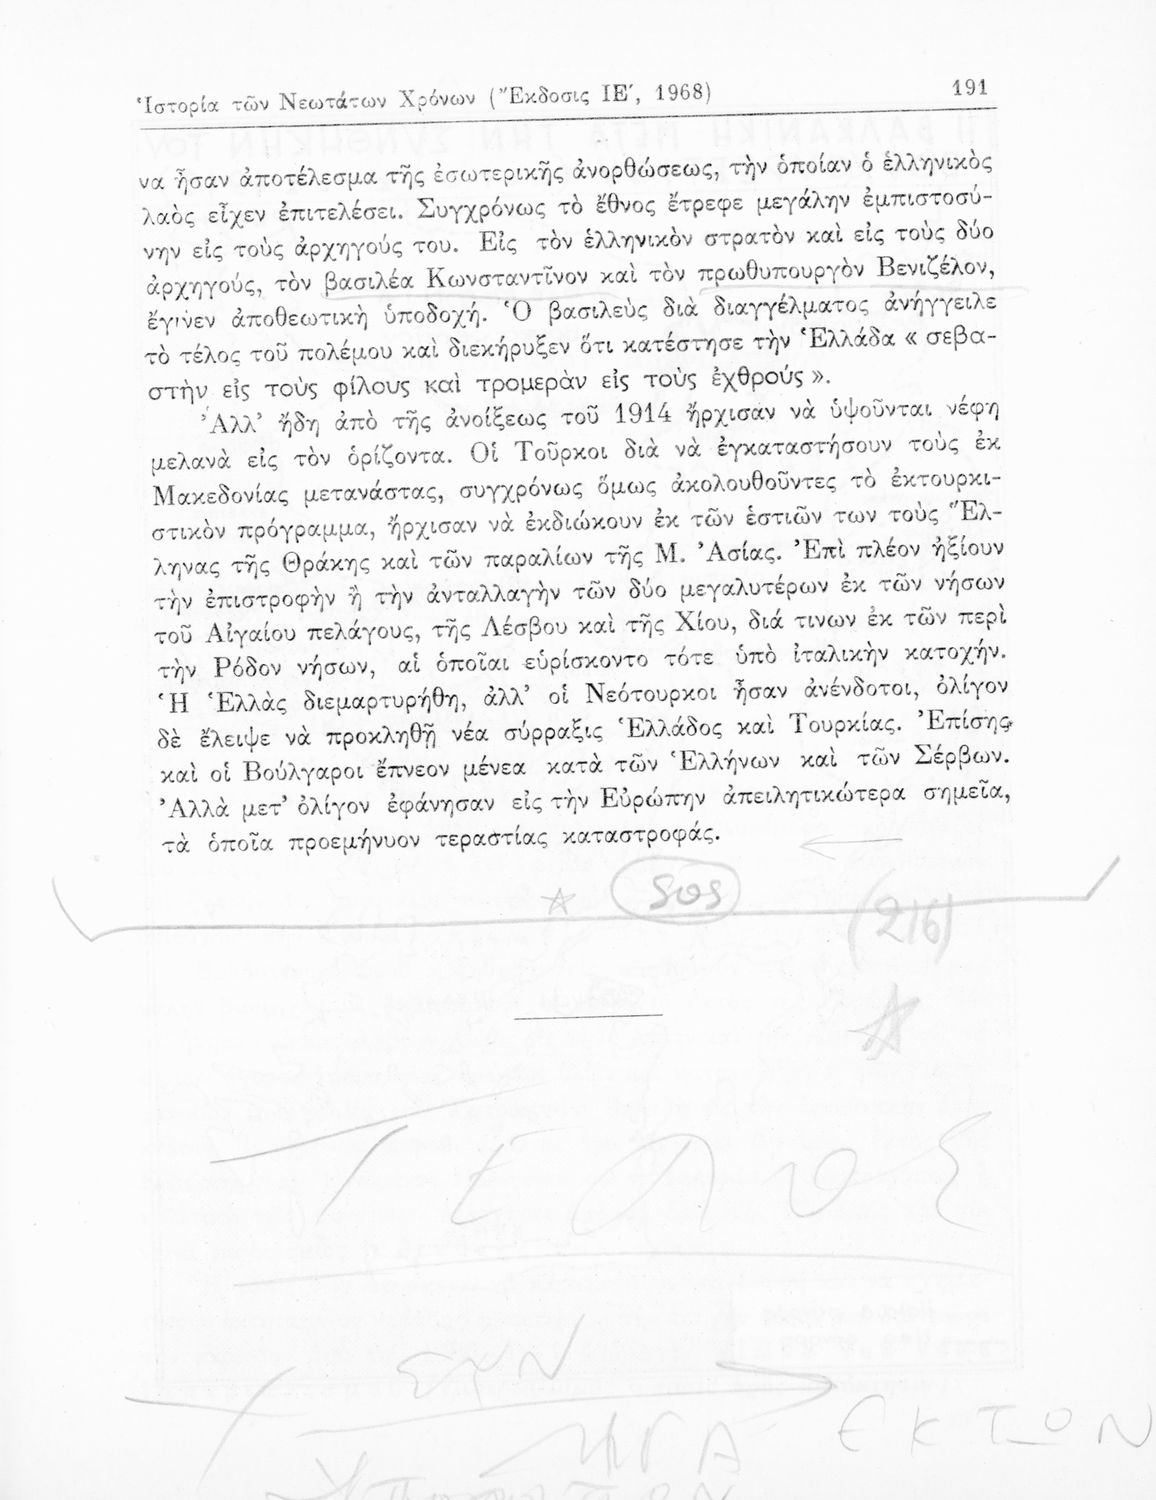 Ἱστορία τῶν Νεωτάτων Χρόνων (Ἔκδοσις ΙΕ′, 1968) 191
να ἦσαν ἀποτέλεσμα τῆς ἐσωτερικῆς ἀνορθώσεως, τὴν ὁποίαν ὁ ἑλληνικὸς
λαὸς εἶχεν ἐπιτελέσει. Συγχρόνως τὸ ἔθνος ἔτρεφε μεγάλην ἐμπιστοσύ-
νην εἰς τοὺς ἀρχηγούς του. Εἰς τὸν ἑλληνικὸν στρατὸν καὶ εἰς τοὺς δύο
ἀρχηγούς, τὸν βασιλέα Κωνσταντῖνον καὶ τὸν πρωθυπουργὸν Βενιζέλον,
ἔγινεν ἀποθεωτικὴ ὑποδοχή. Ὁ βασιλεὺς διὰ διαγγέλματος ἀνήγγειλε
τὸ τέλος τοῦ πολέμου καὶ διεκήρυξεν ὅτι κατέστησε τὴν Ἑλλάδα « σεβα-
στὴν εἰς τοὺς φίλους καὶ τρομερὰν εἰς τοὺς ἐχθρούς ».
Ἀλλ’ ἤδη ἀπὸ τῆς ἀνοίξεως τοῦ 1914 ἤρχισαν νὰ ὑψοῦνται νέφη
μελανὰ εἰς τὸν ὁρίζοντα. Οἱ Τοῦρκοι διὰ νὰ ἐγκαταστήσουν τοὺς ἐκ
Μακεδονίας μετανάστας, συγχρόνως ὅμως ἀκολουθοῦντες τὸ ἐκτουρκι-
στικὸν πρόγραμμα, ἤρχισαν νὰ ἐκδιώκουν ἐκ τῶν ἑστιῶν των τοὺς Ἕλ-
ληνας τῆς Θράκης καὶ τῶν παραλίων τῆς Μ. Ἀσίας. Ἐπὶ πλέον ἠξίουν
τὴν ἐπιστροφὴν ἢ τὴν ἀνταλλαγὴν τῶν δύο μεγαλυτέρων ἐκ τῶν νήσων
τοῦ Αἰγαίου πελάγους, τῆς Λέσβου καὶ τῆς Χίου, διά τινων ἐκ τῶν περὶ
τὴν Ρόδον νήσων, αἱ ὁποῖαι εὑρίσκοντο τότε ὑπὸ ἰταλικὴν κατοχήν.
Ἡ Ἑλλὰς διεμαρτυρήθη, ἀλλ’ οἱ Νεότουρκοι ἦσαν ἀνένδοτοι, ὀλίγον
δὲ ἔλειψε νὰ προκληθῇ νέα σύρραξις Ἑλλάδος καὶ Τουρκίας. Ἐπίσης
καὶ οἱ Βούλγαροι ἔπνεον μένεα κατὰ τῶν Ἑλλήνων καὶ τῶν Σέρβων.
Ἀλλὰ μετ’ ὀλίγον ἐφάνησαν εἰς τὴν Εὐρώπην ἀπειλητικώτερα σημεῖα,
τὰ ὁποῖα προεμήνυον τεραστίας καταστροφάς.
SOS
(216)
ΤΕΛΟΣ
ΕΚ ΤΩΝ